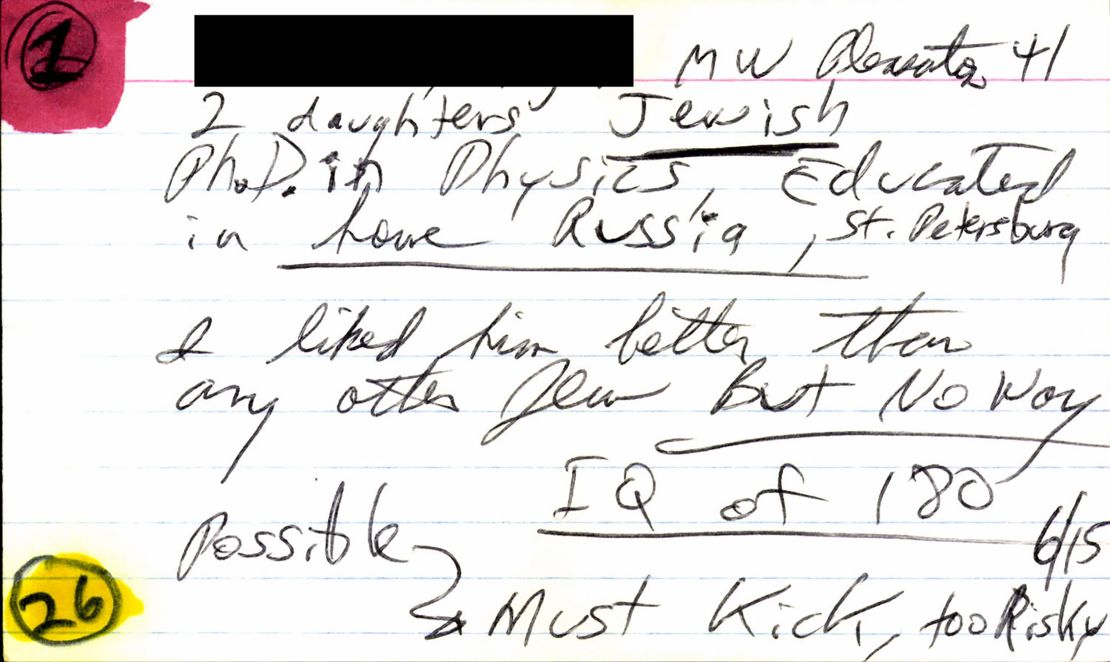 1
MW Pleasanton 41
2 daughters Jewish
Ph.D. in Physics, Educated
in home Russia, St. Petersburg
I liked him better than
any other Jew But No Way
IQ of 180
Possible 6/15
26
& Must Kick, too Risky